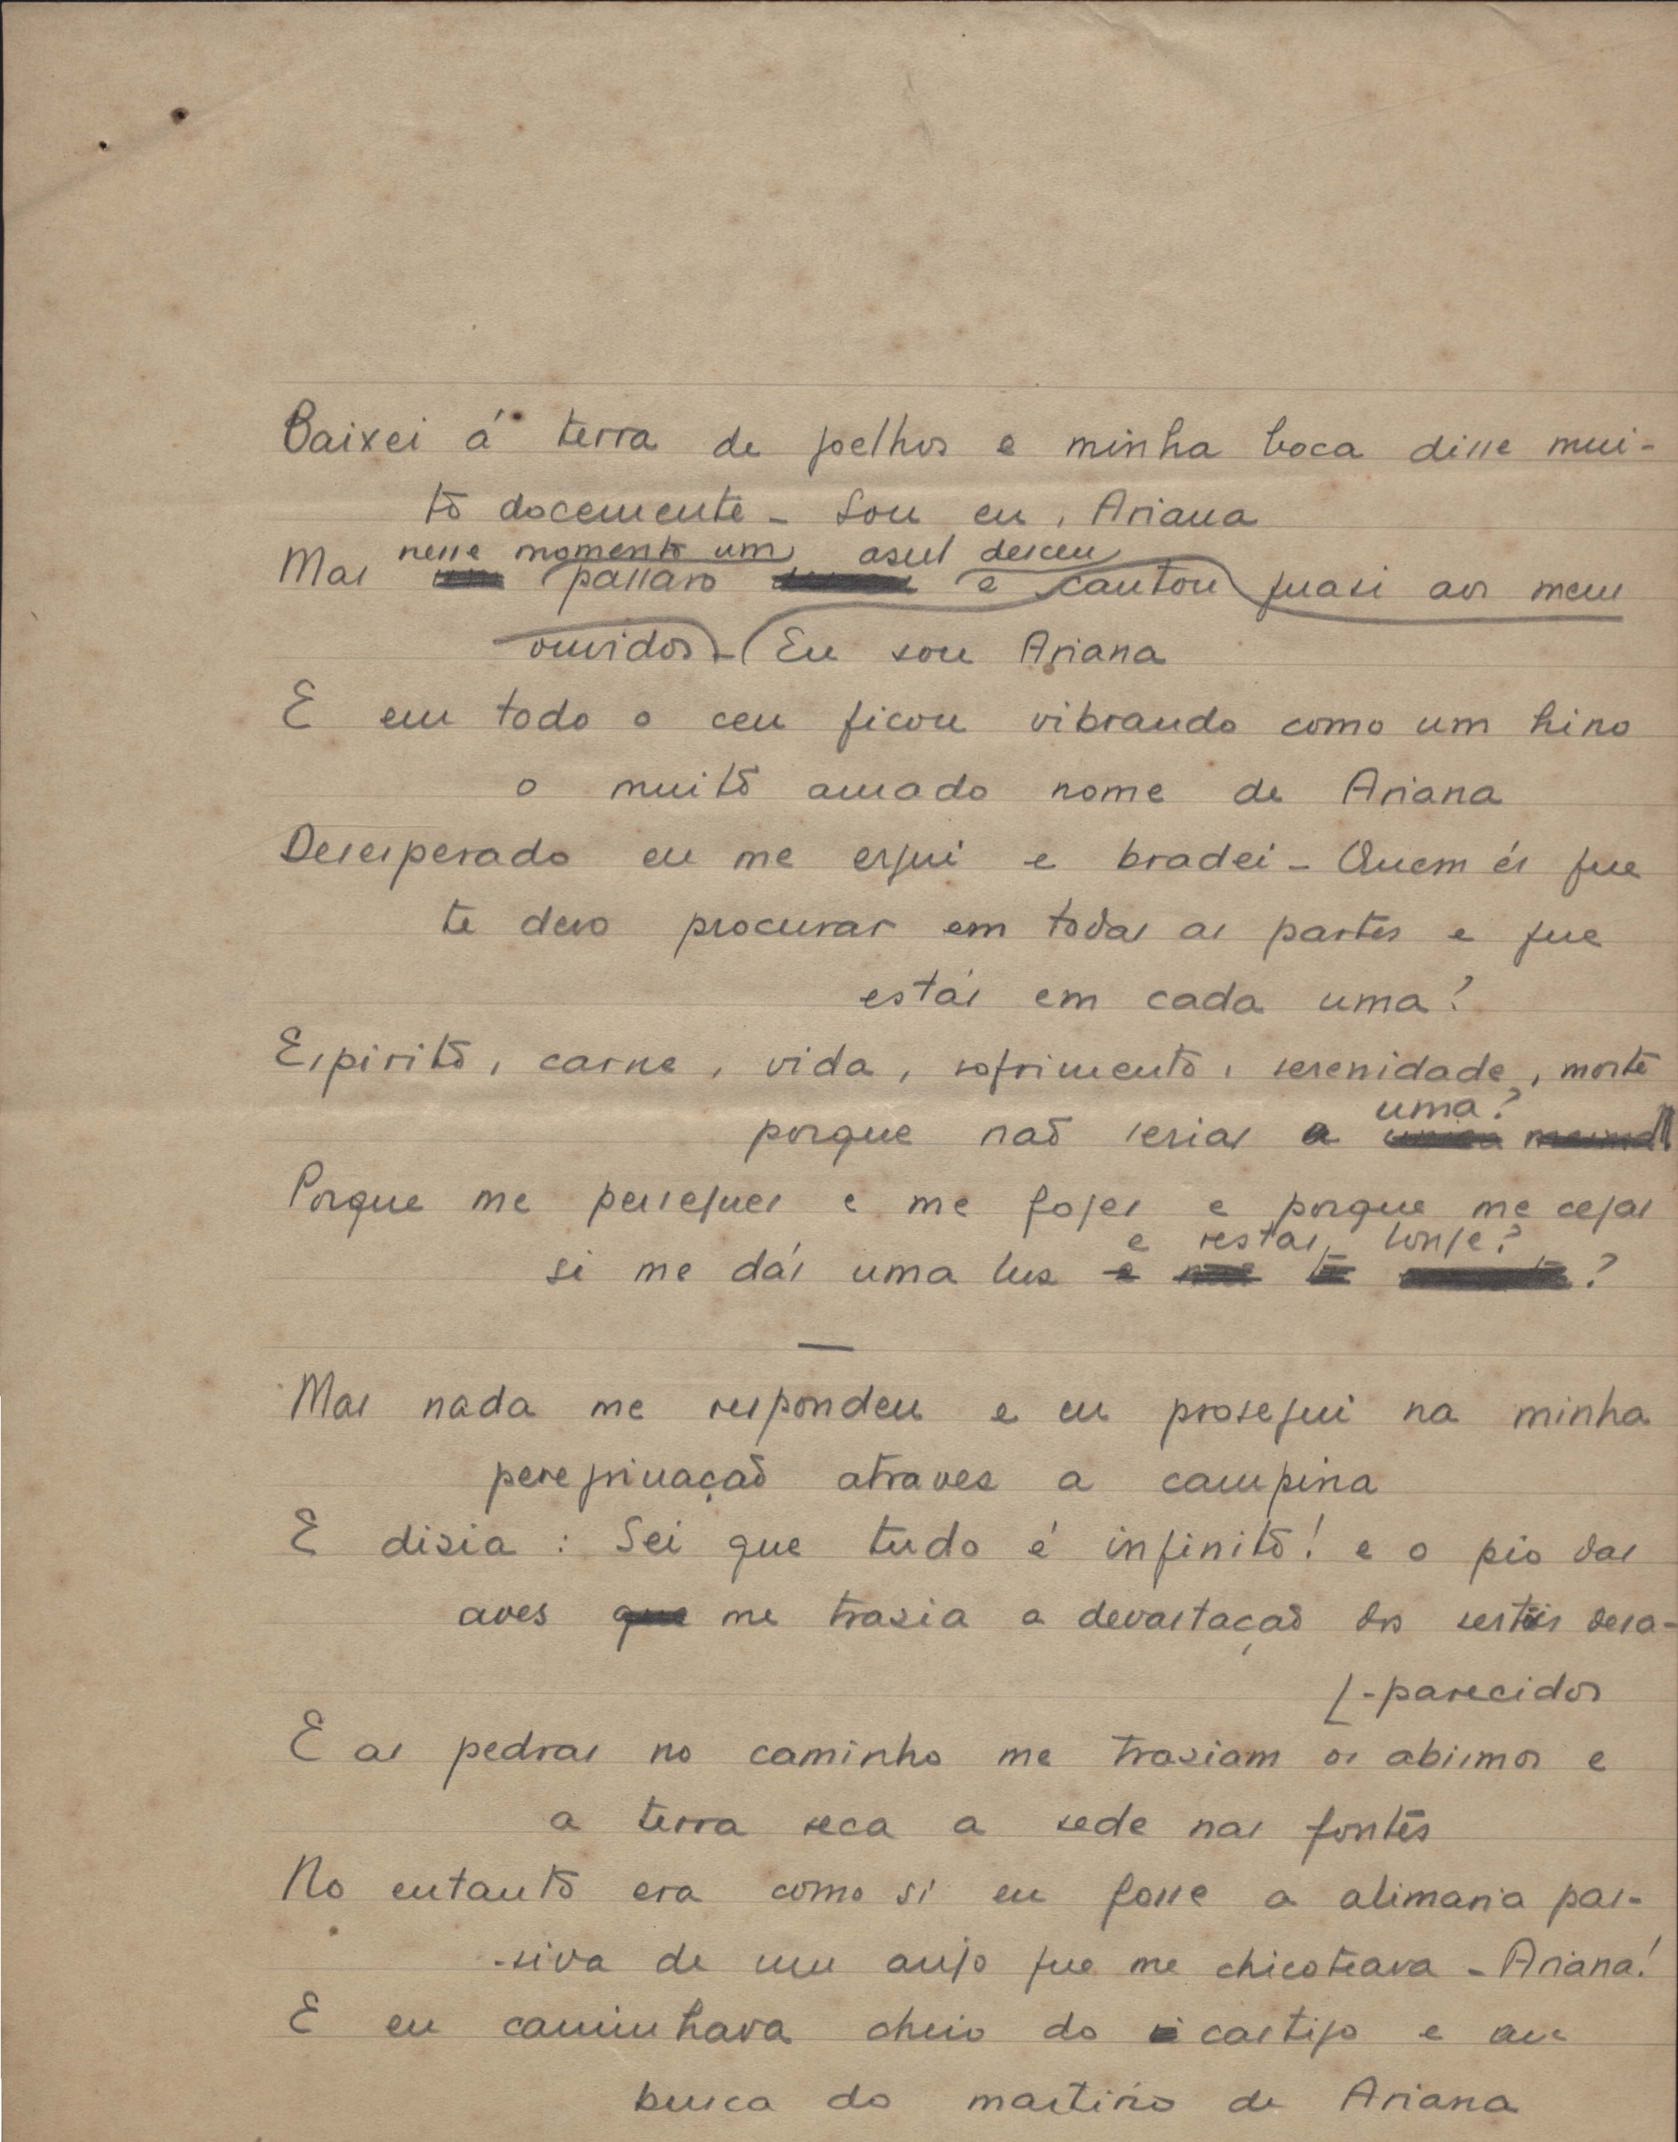 Baixei á terra de joelhos e minha boca disse mui-
to docemente - Sou eu, Ariana
nesse momento um azul desceu
Mas passaro e cantou quasi aos meus
ouvidos - Eu sou Ariana
E em todo o ceu ficou vibrando como um hino
o muito amado nome de Ariana
Desesperado eu me ergui e bradei - Quem és que
te devo procurar em todas as partes e que
estás em cada uma?
Espirito, carne, vida, sofrimento, serenidade, morte
uma?
porque não serias a
Porque me persegues e me foges e porque me cegas
e restas longe?
si me dás uma luz e ?
Mas nada me respondeu e eu prosegui na minha
peregrinação atravez a campina
E dizia: Sei que tudo é infinito! e o pio das
aves que me trazia a devastação dos sertões desa-
-parecidos
E as pedras no caminho me traziam os abismos e
a terra seca a sede nas fontes
No entanto era como si eu fosse a alimaria pas-
-siva de um anjo que me chicoteava - Ariana!
E eu caminhava cheio do castigo e em
busca do martirio de Ariana